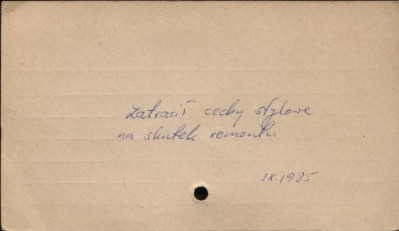 zatracił cechy stylowe
na skutek remontu
IX.1985